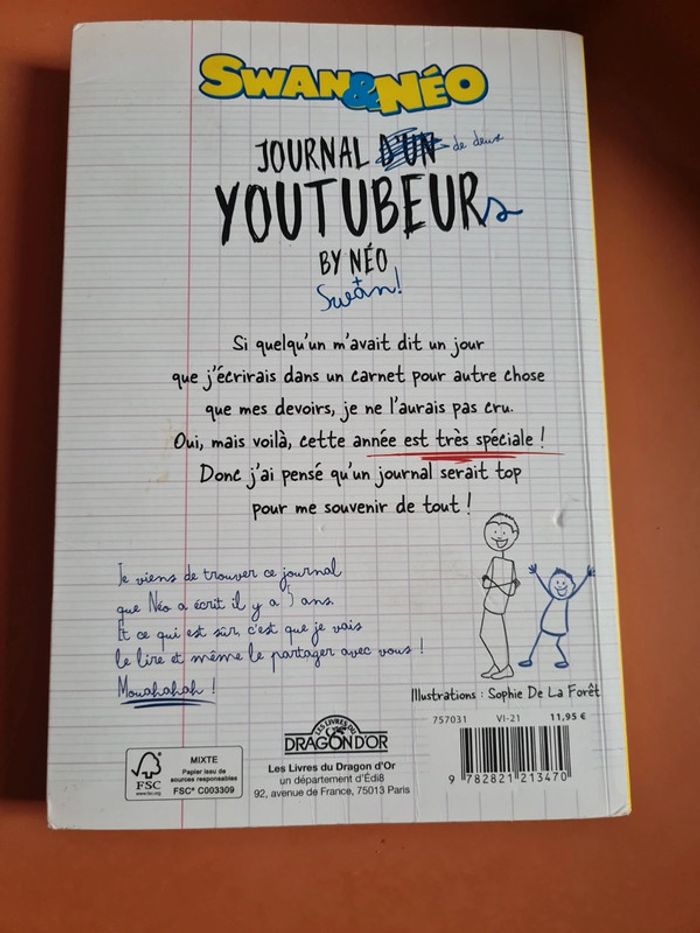 SWAN & NÉO
JOURNAL D'UN de deux
YOUTUBEURs
BY NÉO
+ Swan!
Si quelqu'un m'avait dit un jour
que j'écrirais dans un carnet pour autre chose
que mes devoirs, je ne l'aurais pas cru.
Oui, mais voilà, cette année est très spéciale !
Donc j'ai pensé qu'un journal serait top
pour me souvenir de tout !
Je viens de trouver ce journal
que Néo a écrit il y a 5 ans.
Et ce qui est sûr, c'est que je vais
le lire et même le partager avec vous !
Mouahahah !
Illustrations : Sophie De La Forêt
757031 VI-21 11,95 €
FSC
www.fsc.org
MIXTE
Papier issu de
sources responsables
FSC® C003309
LES LIVRES DU
DRAGON D'OR
Les Livres du Dragon d'Or
un département d'Édi8
92, avenue de France, 75013 Paris
9 782821 213470